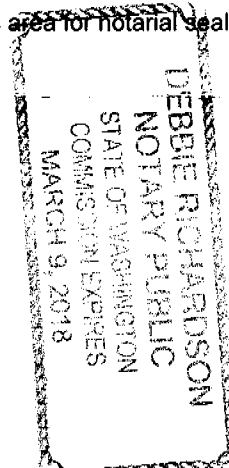 area for notarial seal
DEBBIE RICHARDSON
NOTARY PUBLIC
STATE OF WASHINGTON
COMMISSION EXPIRES
MARCH 9, 2018